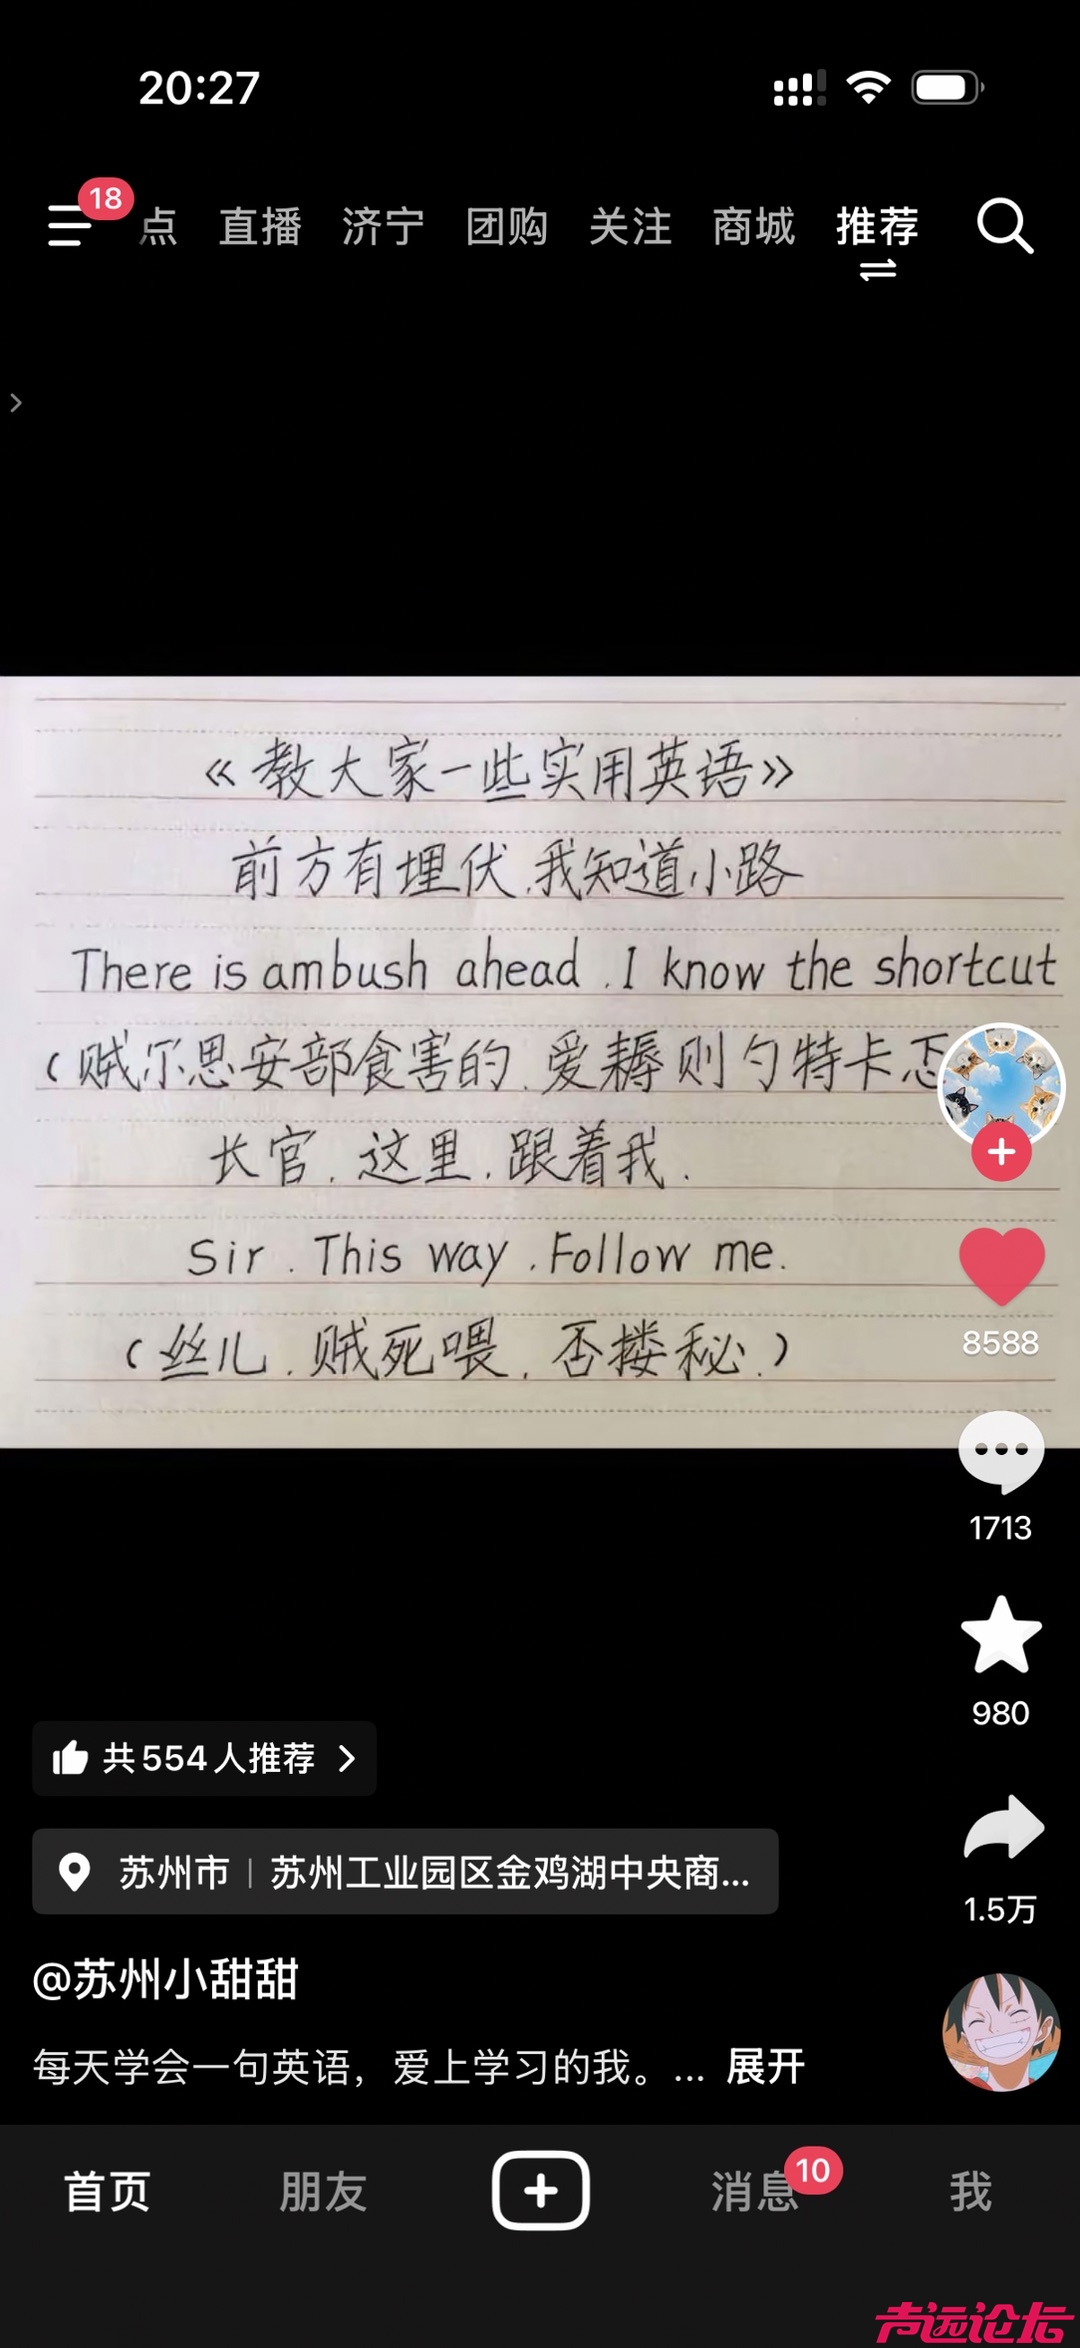 20:27
18
点 直播 济宁 团购 关注 商城 推荐
《教大家一些实用英语》
前方有埋伏.我知道小路
There is ambush ahead .I know the shortcut
(贼尔思安部食害的.爱耨则勺特卡忑
长官.这里.跟着我.
Sir . This way .Follow me.
(丝儿.贼死喂.否搂秘.)
8588
1713
980
1.5万
共554人推荐
苏州市 | 苏州工业园区金鸡湖中央商...
@苏州小甜甜
每天学会一句英语，爱上学习的我。... 展开
首页 朋友 消息 10 我
声远论坛